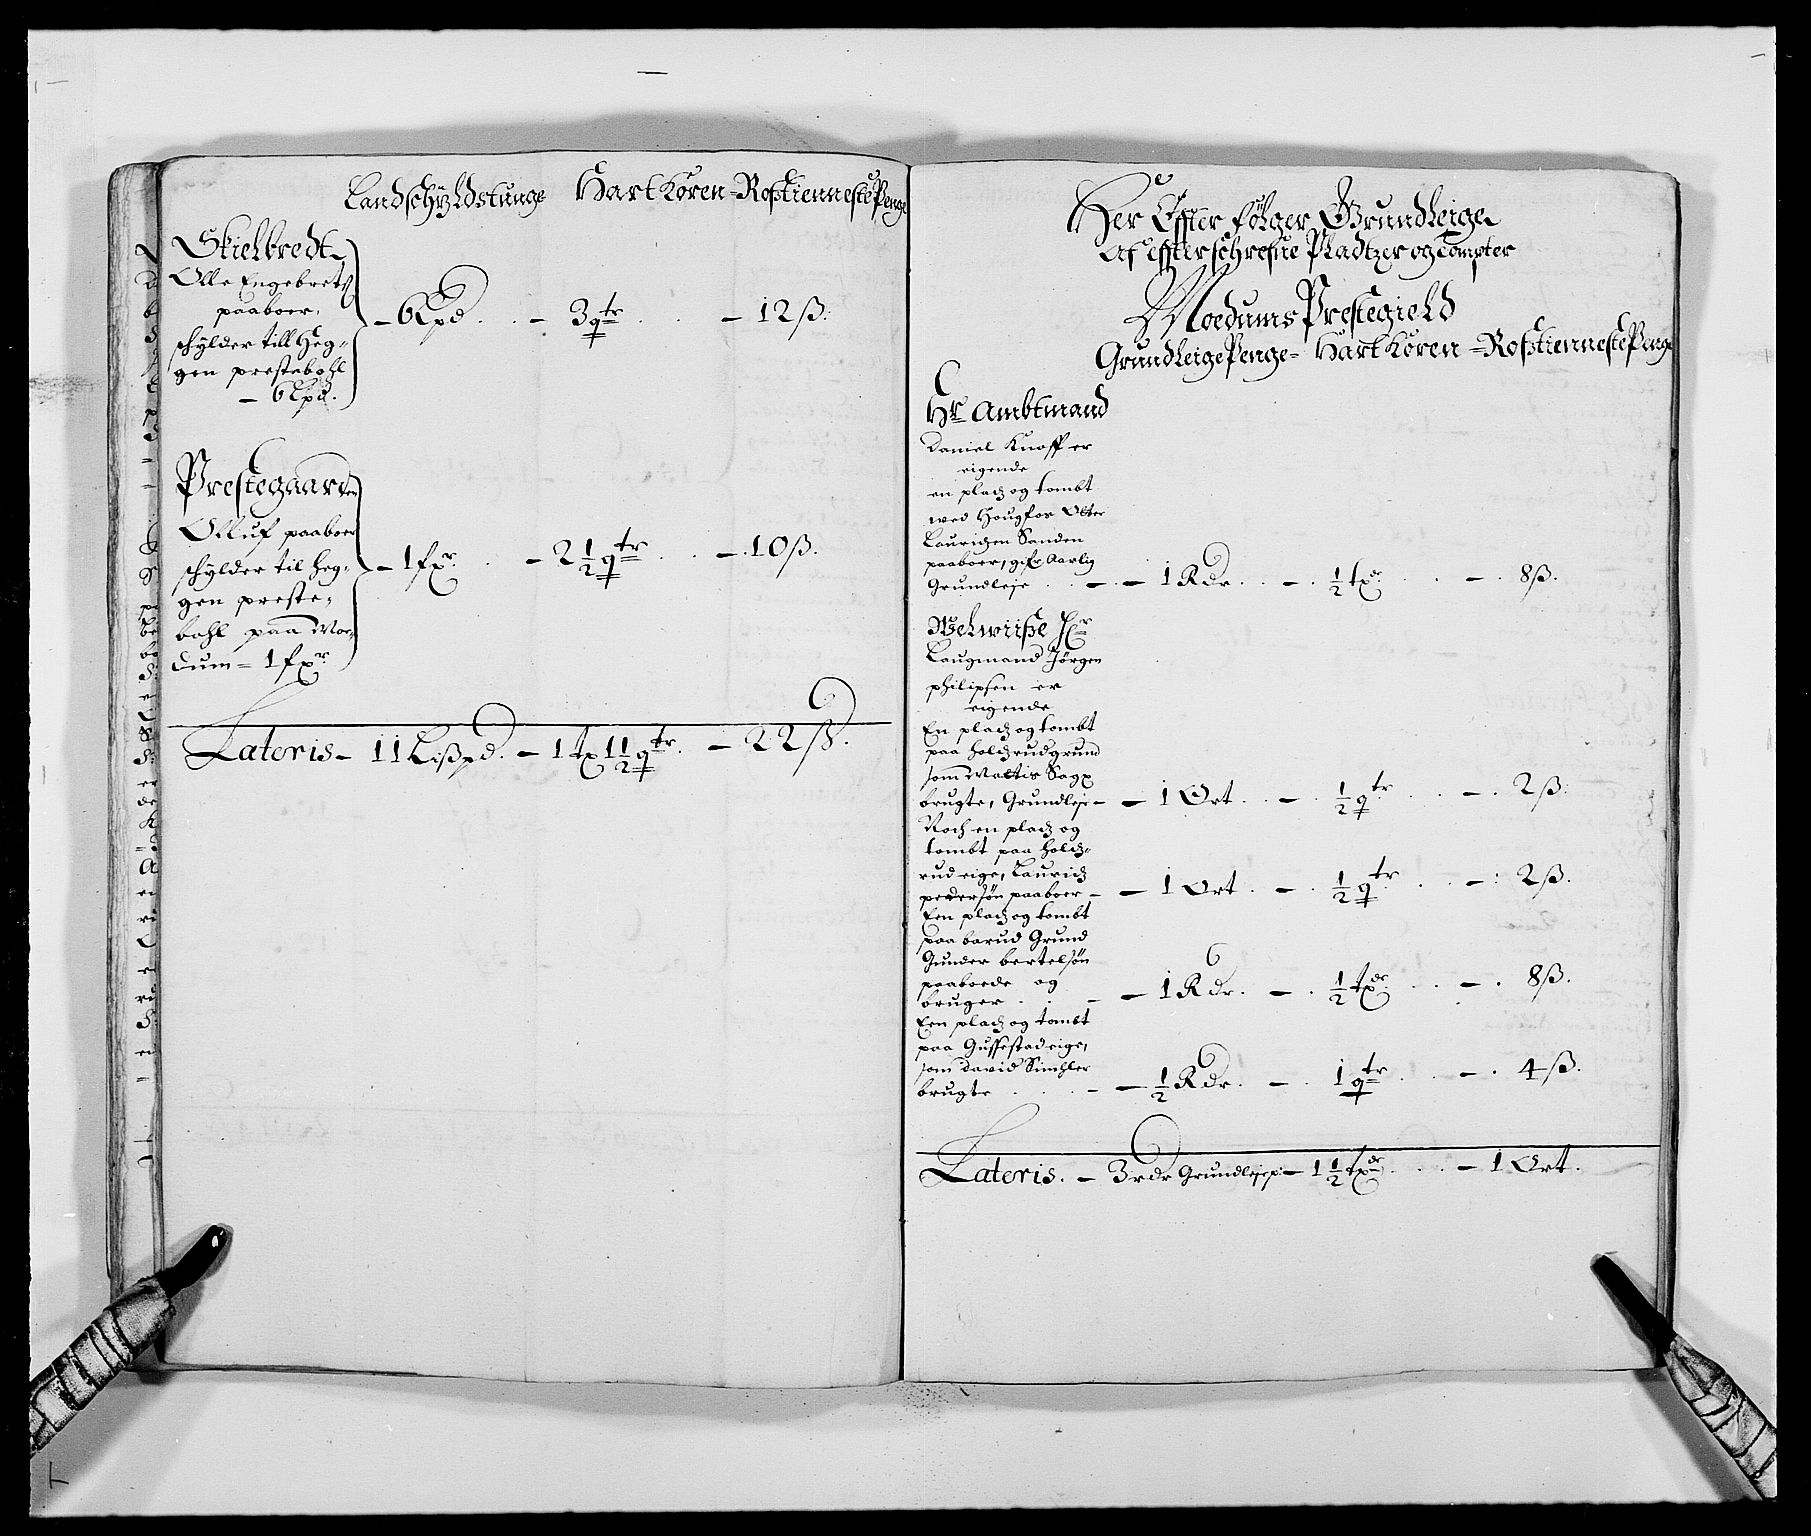 Landschÿldstunge Hart Koren - Rostienneste Penge
Skielbredt
Olle Engebrets
paaboer,
schÿlder till Heg-
gen prestebohl
- 6 Lpd.
- 6 Lpd . . - 3 qtr . . - 12 ß:
Prestegaarden
Olluf paaboer
schÿlder til Heg-
gen preste-
bohl paa Moe-
dum - 1 fxr
- 1 fxr. . . - 2 1/2 qtr . . - 10 ß.
Lateris - 11 Lißpd. - 1 tx 1 1/2 qtr. - 22 ß.
Her Effter følger Grundleige
Af effterschrefne Pladtzer og tompter
Moedums Prestegield
Grundleige Penge - Hart Koren - Rostienneste Penge
Hr Ambtmand
Daniel Knoff er
eigende
en pladz og tombt
wed Hougfos Olter
Lauridzen Sanden
paaboer, gifr Aarlig
Grundleje . . - 1 Rdr . . - 1/2 txr . . - 8 ß.
Welwiiße Hr
Laugmand Jørgen
philipsen er
eigende
En pladz og tombt
paa Holdzrudgrund
som Maltis Sagx
brugte, Grundleje - - 1 Ort . . - . 1/2 qtr . . - . 2 ß:
Noch en pladz og
tombt paa Holdz-
rud eige, Lauridz
pedersøn paaboer - - 1 Ort . - . 1/2 qtr . . - : 2 ß.
Een pladz og tombt
paa barud Grund
Gunder bertelsøn
paaboede og
bruger . . - - 1 Rdr. - . 1/2 txdr . . - . 8 ß.
Een pladz og tombt
paa Guffestad eige,
som David Sinchler
brugte . . - - 1/2 Rdr. - . 1 qtr . . - . 4 ß.
Lateris. - 3 rdr Grundlejep: - 1 1/2 txdr . . . - 1 Ort.